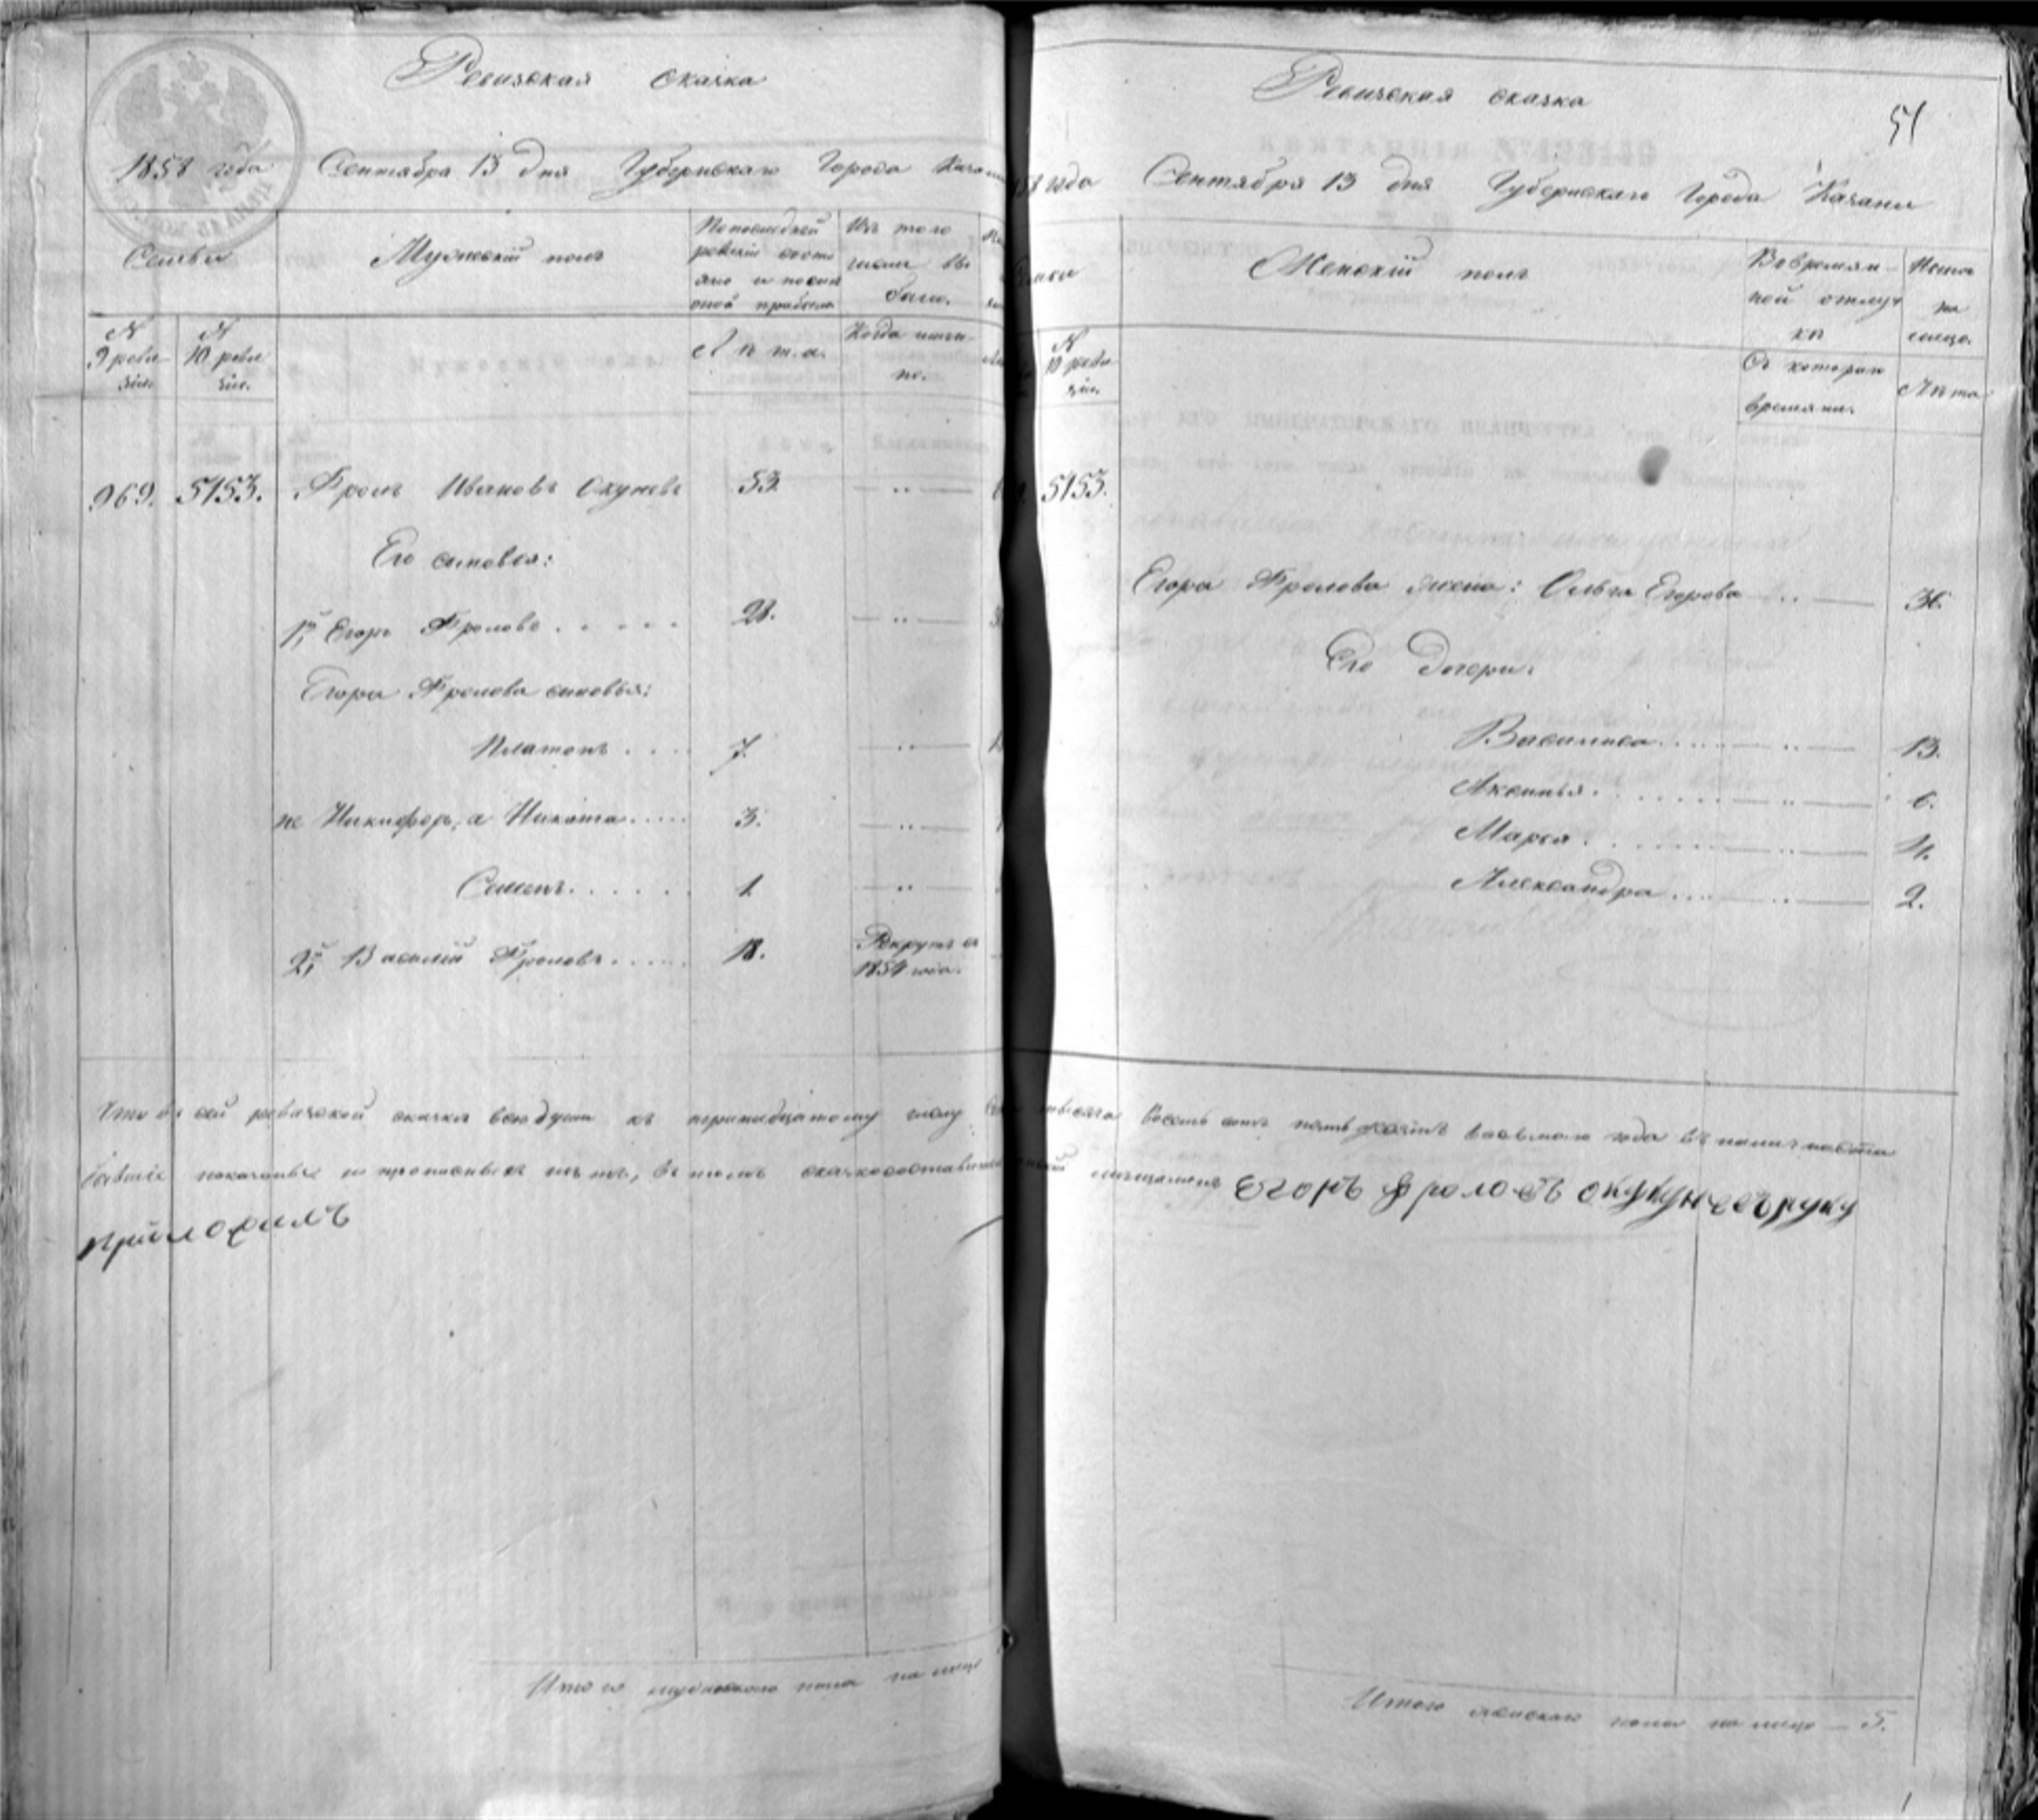 Ревизская сказка
1858 года Сентября 13 дня Губернскаго Города
Семьи
Мужеский полъ
По последней ревизіи состояло и после оной прибыло
Изъ того числа выбыло.
№ 9 ревизіи.
№ 10 ревизіи.
Лѣта.
Когда именно.
969. 5153. Фролъ Ивановъ Окуневъ 53.
Его сыновья:
1й, Егоръ Фроловъ 28.
Егора Фролова сыновья:
Платонъ 7.
не Никифоръ, а Никита 3.
Семенъ 1
2й, Василій Фроловъ 18. Рекрутъ съ 1854 года.
Что въ сей ревизской сказке все души къ тринадцатому числу
показаны и прописныхъ нѣтъ, въ томъ
приложилъ
Итого мужескаго пола на лицо
Ревизская сказка
51
года Сентября 13 дня Губернскаго Города Казани
Женскій полъ
Во временной отлучке
На лицо.
№ 10 ревизіи.
Съ котораго времени.
Лѣта
5153.
Егора Фролова жена: Ольга Егорова
Его дочери:
Василиса 13.
Аксинья 6.
Марья 4.
Александра 2.
тысяча восемь сотъ пятьдесятъ восьмаго года въ наличности
мещанинъ Егоръ Фроловъ руку
Итого женскаго пола на лицо — 5.